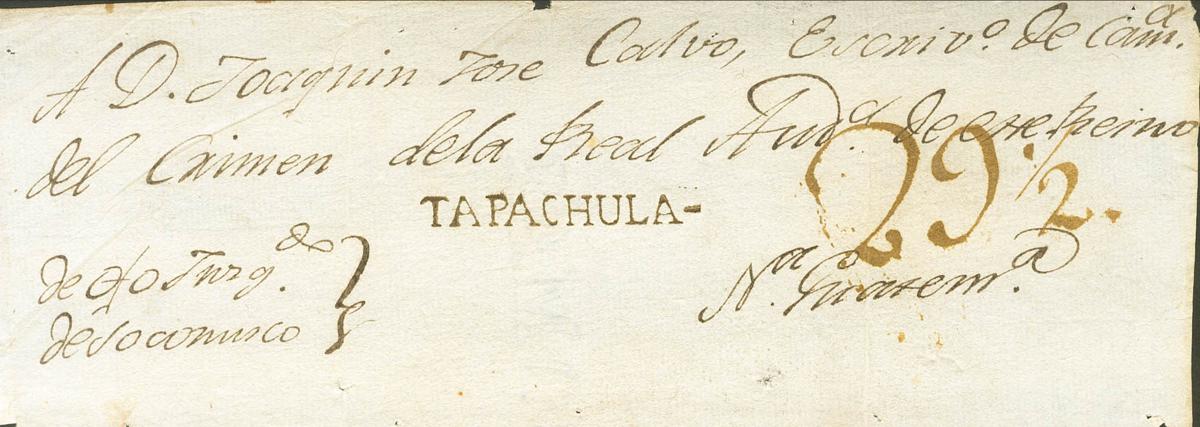 A D. Joaquin Jose Calvo, Escrivº. de Camª.
del Crimen dela Real Audª. de este Reino
TAPACHULA-
29½.
de Juzgdo.
de Soconusco
Nª. Guatemª.